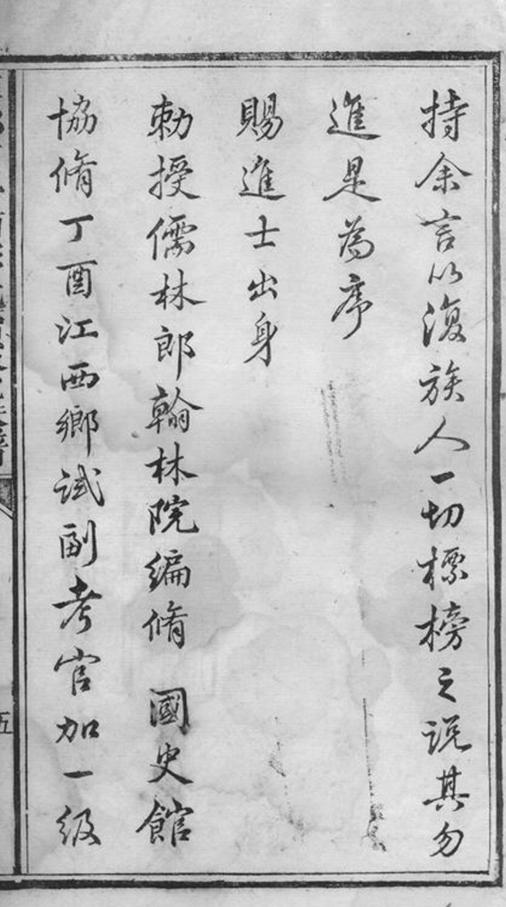 持余言以復族人一切標榜之说其勿
進是為序
賜進士出身
勅授儒林郎翰林院編脩　國史館
協脩丁酉江西鄉试副考官加一級
五